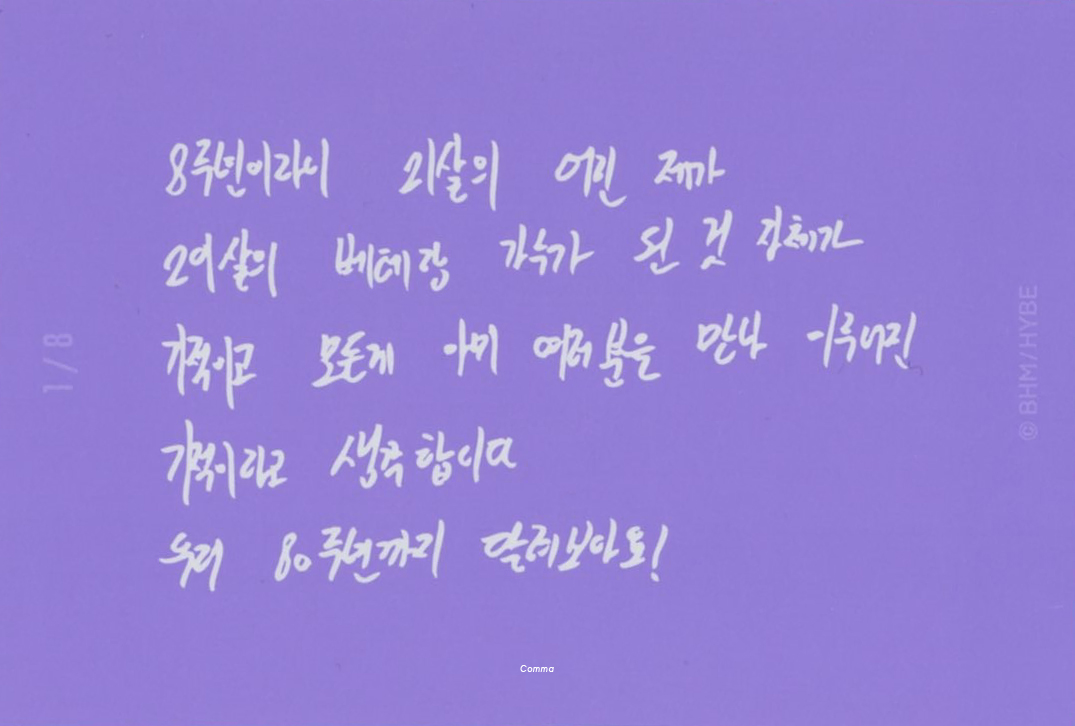 8주년이라니 21살의 어린 제가
29살의 베테랑 가수가 된 것 자체가
기적이고 모든게 아미 여러분을 만나 이루어진
기적이라고 생각합니다
우리 80주년까지 달려보아요!
1/8
© BHM/HYBE
Comma